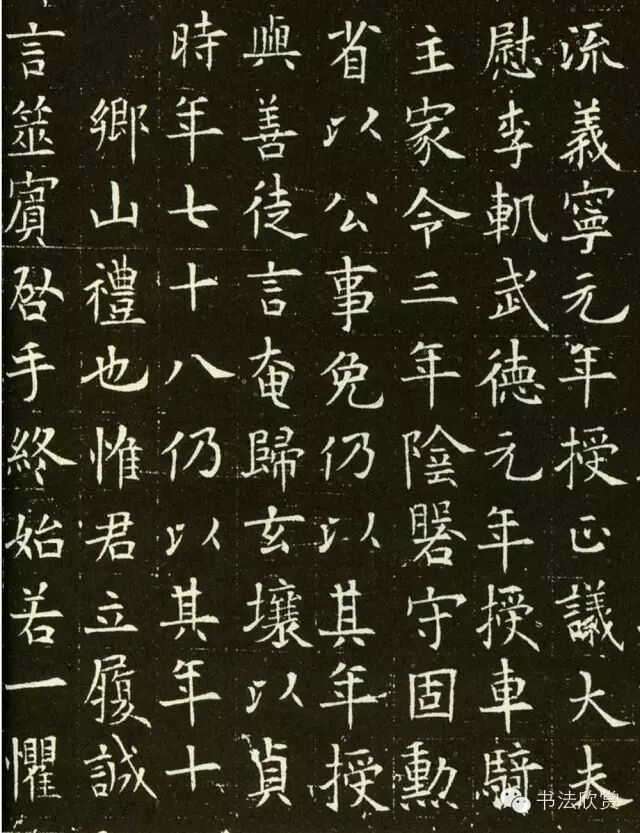 流義寧元年授正議大夫
慰李軌武徳元年授車騎
主家令三年陰守固勳
省以公事免仍以其年授
與善徒言奄歸玄壤以貞
時年七十八仍以其年十
鄉山禮也惟君立履誠
言筮賓啓手終始若一懼
书法欣赏